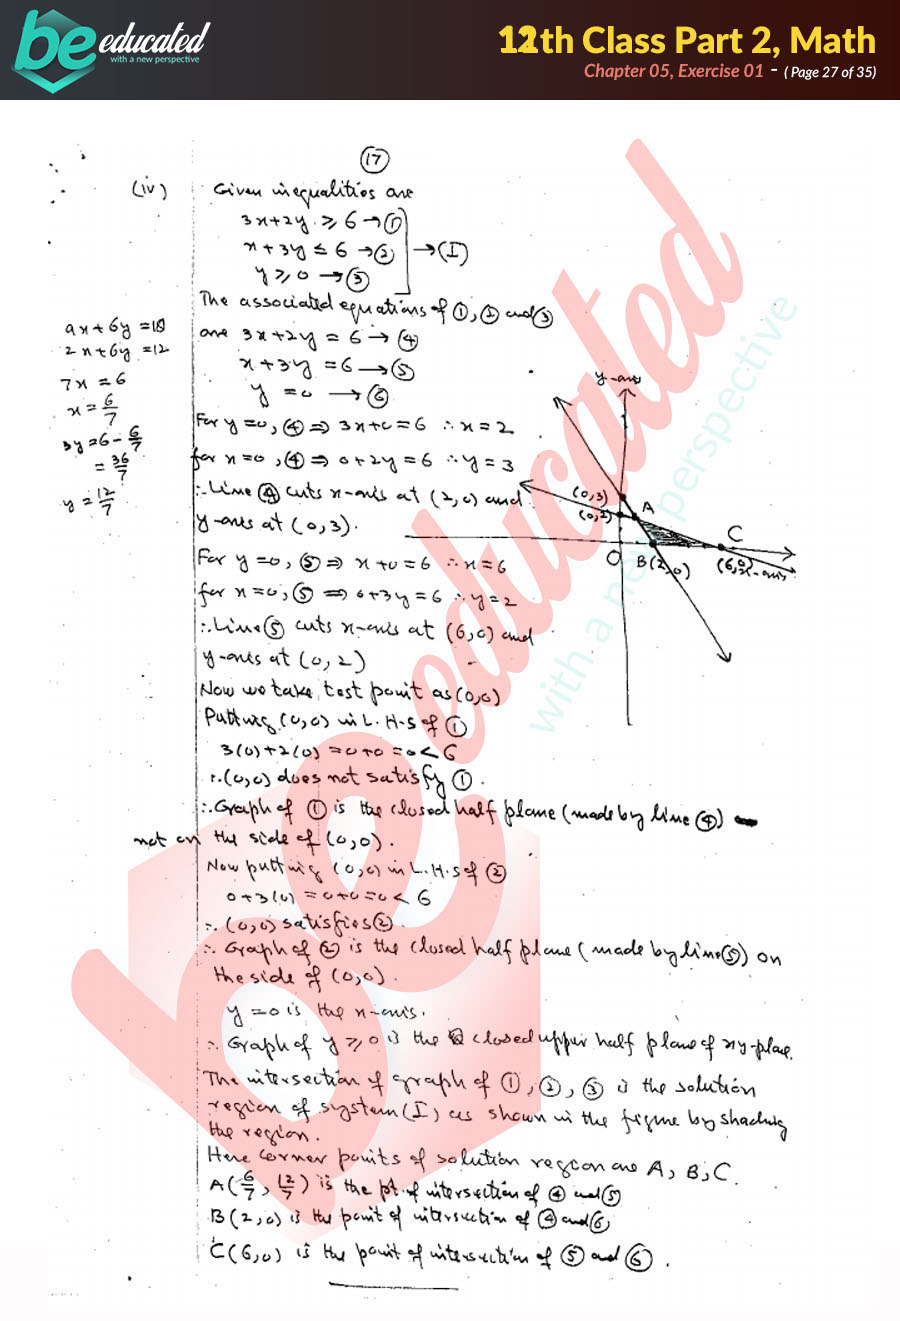 be educated
with a new perspective
12th Class Part 2, Math
Chapter 05, Exercise 01 - ( Page 27 of 35)
17
(iv) Given inequalities are
3x+2y ≥ 6 → ①
x+3y ≤ 6 → ②
y ≥ 0 → ③
→ (I)
The associated equations of ①, ② and ③
are 3x+2y = 6 → ④
x+3y = 6 → ⑤
y = 0 → ⑥
9x+6y = 18
2x+6y = 12
7x = 6
x = 6/7
3y = 6 - 6/7
= 36/7
y = 12/7
For y=0, ④ ⇒ 3x+0 = 6 ∴ x = 2
for x=0, ④ ⇒ 0+2y = 6 ∴ y = 3
∴ Line ④ cuts x-axis at (2,0) and
y-axis at (0,3).
For y=0, ⑤ ⇒ x+0 = 6 ∴ x = 6
for x=0, ⑤ ⇒ 0+3y = 6 ∴ y = 2
∴ Line ⑤ cuts x-axis at (6,0) and
y-axis at (0,2)
y-axis
(0,3)
A
(0,2)
C
O
B(2,0)
(6,0)
x-axis
Now we take test point as (0,0)
Putting (0,0) in L.H.S of ①
3(0)+2(0) = 0+0 = 0 < 6
∴ (0,0) does not satisfy ①.
∴ Graph of ① is the closed half plane (made by line ④)
not on the side of (0,0).
Now putting (0,0) in L.H.S of ②
0+3(0) = 0+0 = 0 < 6
∴ (0,0) satisfies ②.
∴ Graph of ② is the closed half plane (made by line ⑤) on
the side of (0,0).
y = 0 is the x-axis.
∴ Graph of y ≥ 0 is the closed upper half plane of xy-plane.
The intersection of graph of ①, ②, ③ is the solution
region of system (I) as shown in the figure by shading
the region.
Here corner points of solution region are A, B, C.
A(6/7, 12/7) is the pt. of intersection of ④ and ⑤
B(2,0) is the point of intersection of ④ and ⑥
C(6,0) is the point of intersection of ⑤ and ⑥.
be educated
with a new perspective